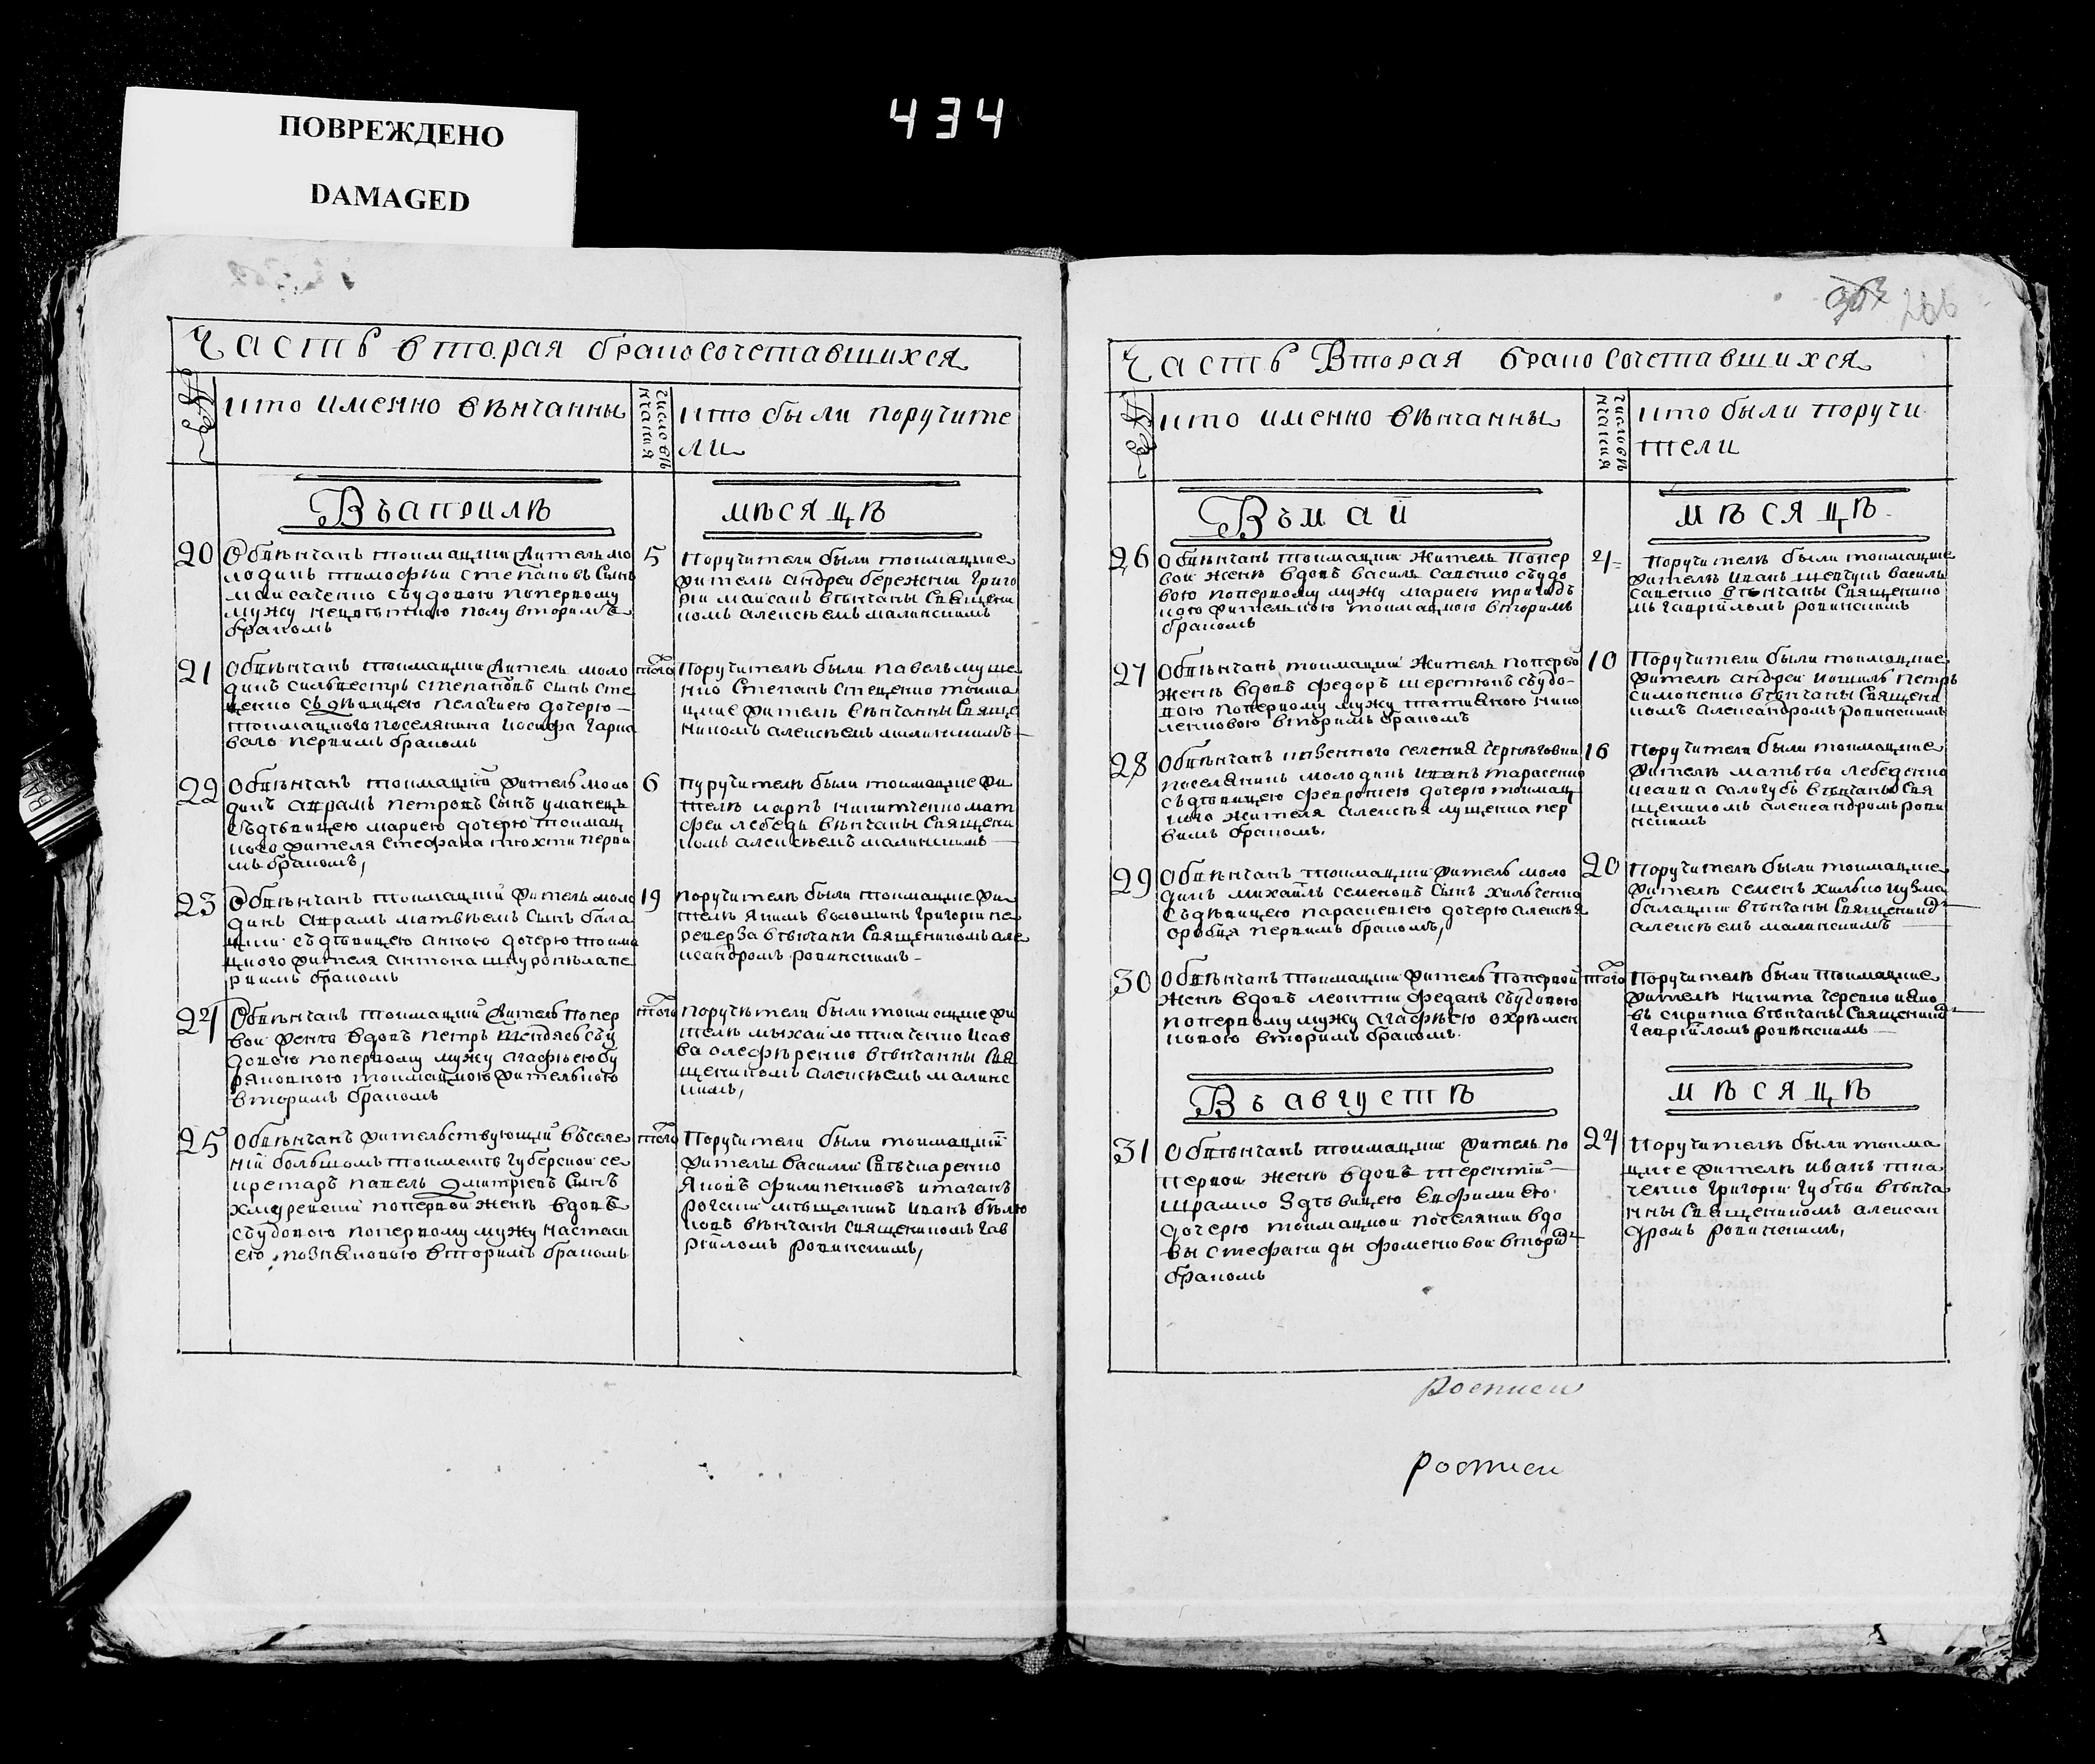 ПОВРЕЖДЕНО
DAMAGED
434
Часть вторая бракосочетавшихся
кто именно вѣнчанны
число вѣнчания
кто были поручите
ли
Въ априлѣ
мѣсяцѣ
20
Обвѣнчанъ токмацкий житель мо
лодикъ тимофѣй степановъ сынъ
мойсаченко съ удовою по первому
мужу
полу вторимъ
бракомъ
5
Поручители были токмацкие
жителѣ андреи бережний григо
рiй майсакъ вѣнчаны священи
комъ алексѣемъ малинскимъ
21
Обвѣнчанъ токмацкий житель моло
дикъ сильвестръ степановъ сынъ сте
ценко съ дѣвицею пелагиею дочерю
токмацкого поселянина иосифа гарка
вого первимъ бракомъ
того
Поручителѣ были павелъ муше
нко степанъ стеценко токма
цкие жителѣ вѣнчанны свяще
никомъ алексѣемъ малинскимъ
22
Обвѣнчанъ токмацкiй житель моло
дикъ аврамъ петровъ сынъ уманецъ
съ дѣвицею мариею дочерю токмац
кого жителя стефана тюхти перви
мъ бракомъ,
6
Пуручителѣ были токмацкие жи
телѣ карпъ никитченко мат
фей лебедь вѣнчаны священи
комъ алексѣемъ малинскимъ
23
Обвѣнчанъ токмацкий житель моло
дикъ аврамъ матвѣемъ сынъ бала
цкий съ дѣвицею анною дочерю токма
цкого жителя антона шкуропѣла пе
рвимъ бракомъ
19
Поручителѣ были токмацкие жи
телѣ якимъ волошинъ григорiй пе
реверза вѣнчани священикомъ але
ксандромъ ровинскимъ
24
Обвѣнчанъ токмацкий житель по пер
вой женѣ вдовъ петръ съ у
довою по первому мужу агафиею бу
ряковкою токмацкою жительного
вторимъ бракомъ
того
Поручѣтели были токмецкие жи
телѣ михайло ткаченко исав
ва олефѣренко вѣнчанны свя
щеникомъ алексѣемъ малинс
кимъ,
25
Обвѣнчанъ жительствующий въ селе
нiй большомъ токмакѣ губерской се
кретаръ павелъ дмитрiевъ сынъ
хмуренский по первой женѣ вдовъ
съ удовою по первому мужу настаси
ею познековою вторимъ бракомъ
того
Поручители были токмацкий
жителы василий
яковъ филипенковъ и таган
рогский мѣщанинъ иванъ бѣлю
ковъ вѣнчаны священикомъ гав
рiиломъ ровинскимъ,
266
Часть Вторая бракосочетавшихся
кто именно вѣнчанны
число вѣнчания
кто были поручи
тели
Въ май
мѣсяцѣ
26
Обвѣнчанъ токмацкий житель по пер
вой женѣ вдовъ василь савенко съ удо
вою по первому мужу мариею
кою жительною токмацкою вторимъ
бракомъ
4
Поручителѣ были токмацкие
жителѣ иванъ шевчукъ василь
савенко вѣнчаны священико
мъ гаврiиломъ ровинскимъ
27
Обвѣнчанъ токмацкий житель по перво
женѣ вдовъ федоръ шереметъ съ удо
вою по первому мужу татияною нико
ленковою вторимъ бракомъ
10
Поручители были токмацкие
жителѣ андрей кошиль петръ
симоненко вѣнчаны священи
комъ александромъ ровинскимъ
28
Обвѣнчанъ казенного селения чернѣговки
поселянинъ молодикъ иванъ тарасенко
съ дѣвицею феврониею дочерю токмац
кого жителя алексѣя лущенка пер
вимъ бракомъ.
16
Поручители были токмацкие
жителѣ матвѣй лебеденко
исаака салогубъ вѣнчаны свя
щеникомъ александромъ рови
нскимъ
29
Обвѣнчанъ токмацкий житель моло
дикъ михайлъ семеновъ сынъ хильченко
съ дѣвицею параскевиею дочерю алексѣя
оробця первимъ бракомъ,
20
Поручителѣ были токмацкие
жителѣ семенъ хилько кузма
балацкий вѣнчаны священико
алексѣемъ малинскимъ
30
Обвѣнчанъ токмацкий житель по первой
женѣ вдовъ леонтий федакъ съ удовою
по первому мужу агафѣею охрѣмен
ковою вторимъ бракомъ.
того
Поручителѣ были токмацкие
жителѣ никита черевко и яко
въ скрипка вѣнчаны священико
гаврiиломъ ровѣнскимъ
Въ августѣ
мѣсяцѣ
31
Обвѣнчанъ токмацкий житель по
первой женѣ вдовъ терентий
шрамко з дѣвицею евфимиею
дочерю токмацкой поселянки вдо
вы стефаниды фоменковой вторим
бракомъ
24
Поручителѣ были токма
цкие жителѣ иванъ тка
ченко григорiй губѣй вѣнча
нны священикомъ алексан
дромъ ровинскимъ,
росписи
росписи